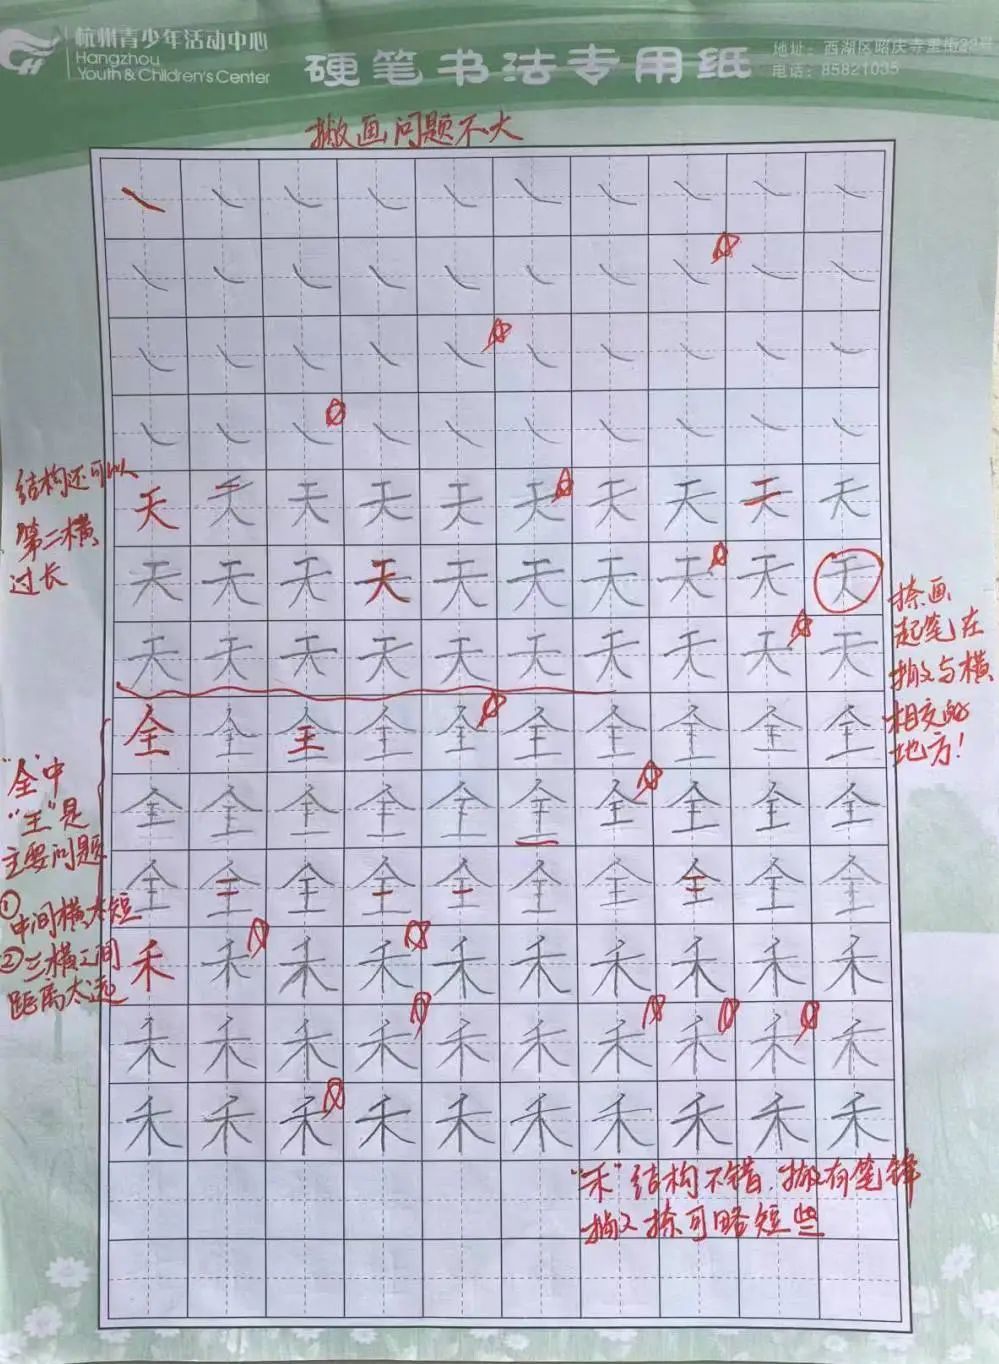 杭州青少年活动中心
Hangzhou
Youth & Children's Center
硬笔书法专用纸
地址：西湖区昭庆寺里街22号
电话：85821035
撇画问题不大
丶 丶 丶 丶 丶 丶 丶 丶 丶 丶
丶 丶 丶 丶 丶 丶 丶 丶 丶 丶
丶 丶 丶 丶 丶 丶 丶 丶 丶 丶
丶 丶 丶 丶 丶 丶 丶 丶 丶 丶
结构还可以
第二横
过长
天 天 天 天 天 天 天 天 天 天
天 天 天 天 天 天 天 天 天 天
天 天 天 天 天 天 天 天 天 天
捺画
起笔在
撇与横
相交的
地方！
全 全 全 全 全 全 全 全 全 全
全 全 全 全 全 全 全 全 全 全
全 全 全 全 全 全 全 全 全 全
"全"中
"王"是
主要问题
①
中间横太短
②三横之间
距离太远
禾 禾 禾 禾 禾 禾 禾 禾 禾 禾
禾 禾 禾 禾 禾 禾 禾 禾 禾 禾
禾 禾 禾 禾 禾 禾 禾 禾 禾 禾
"禾"结构不错，撇有笔锋
撇捺可略短些